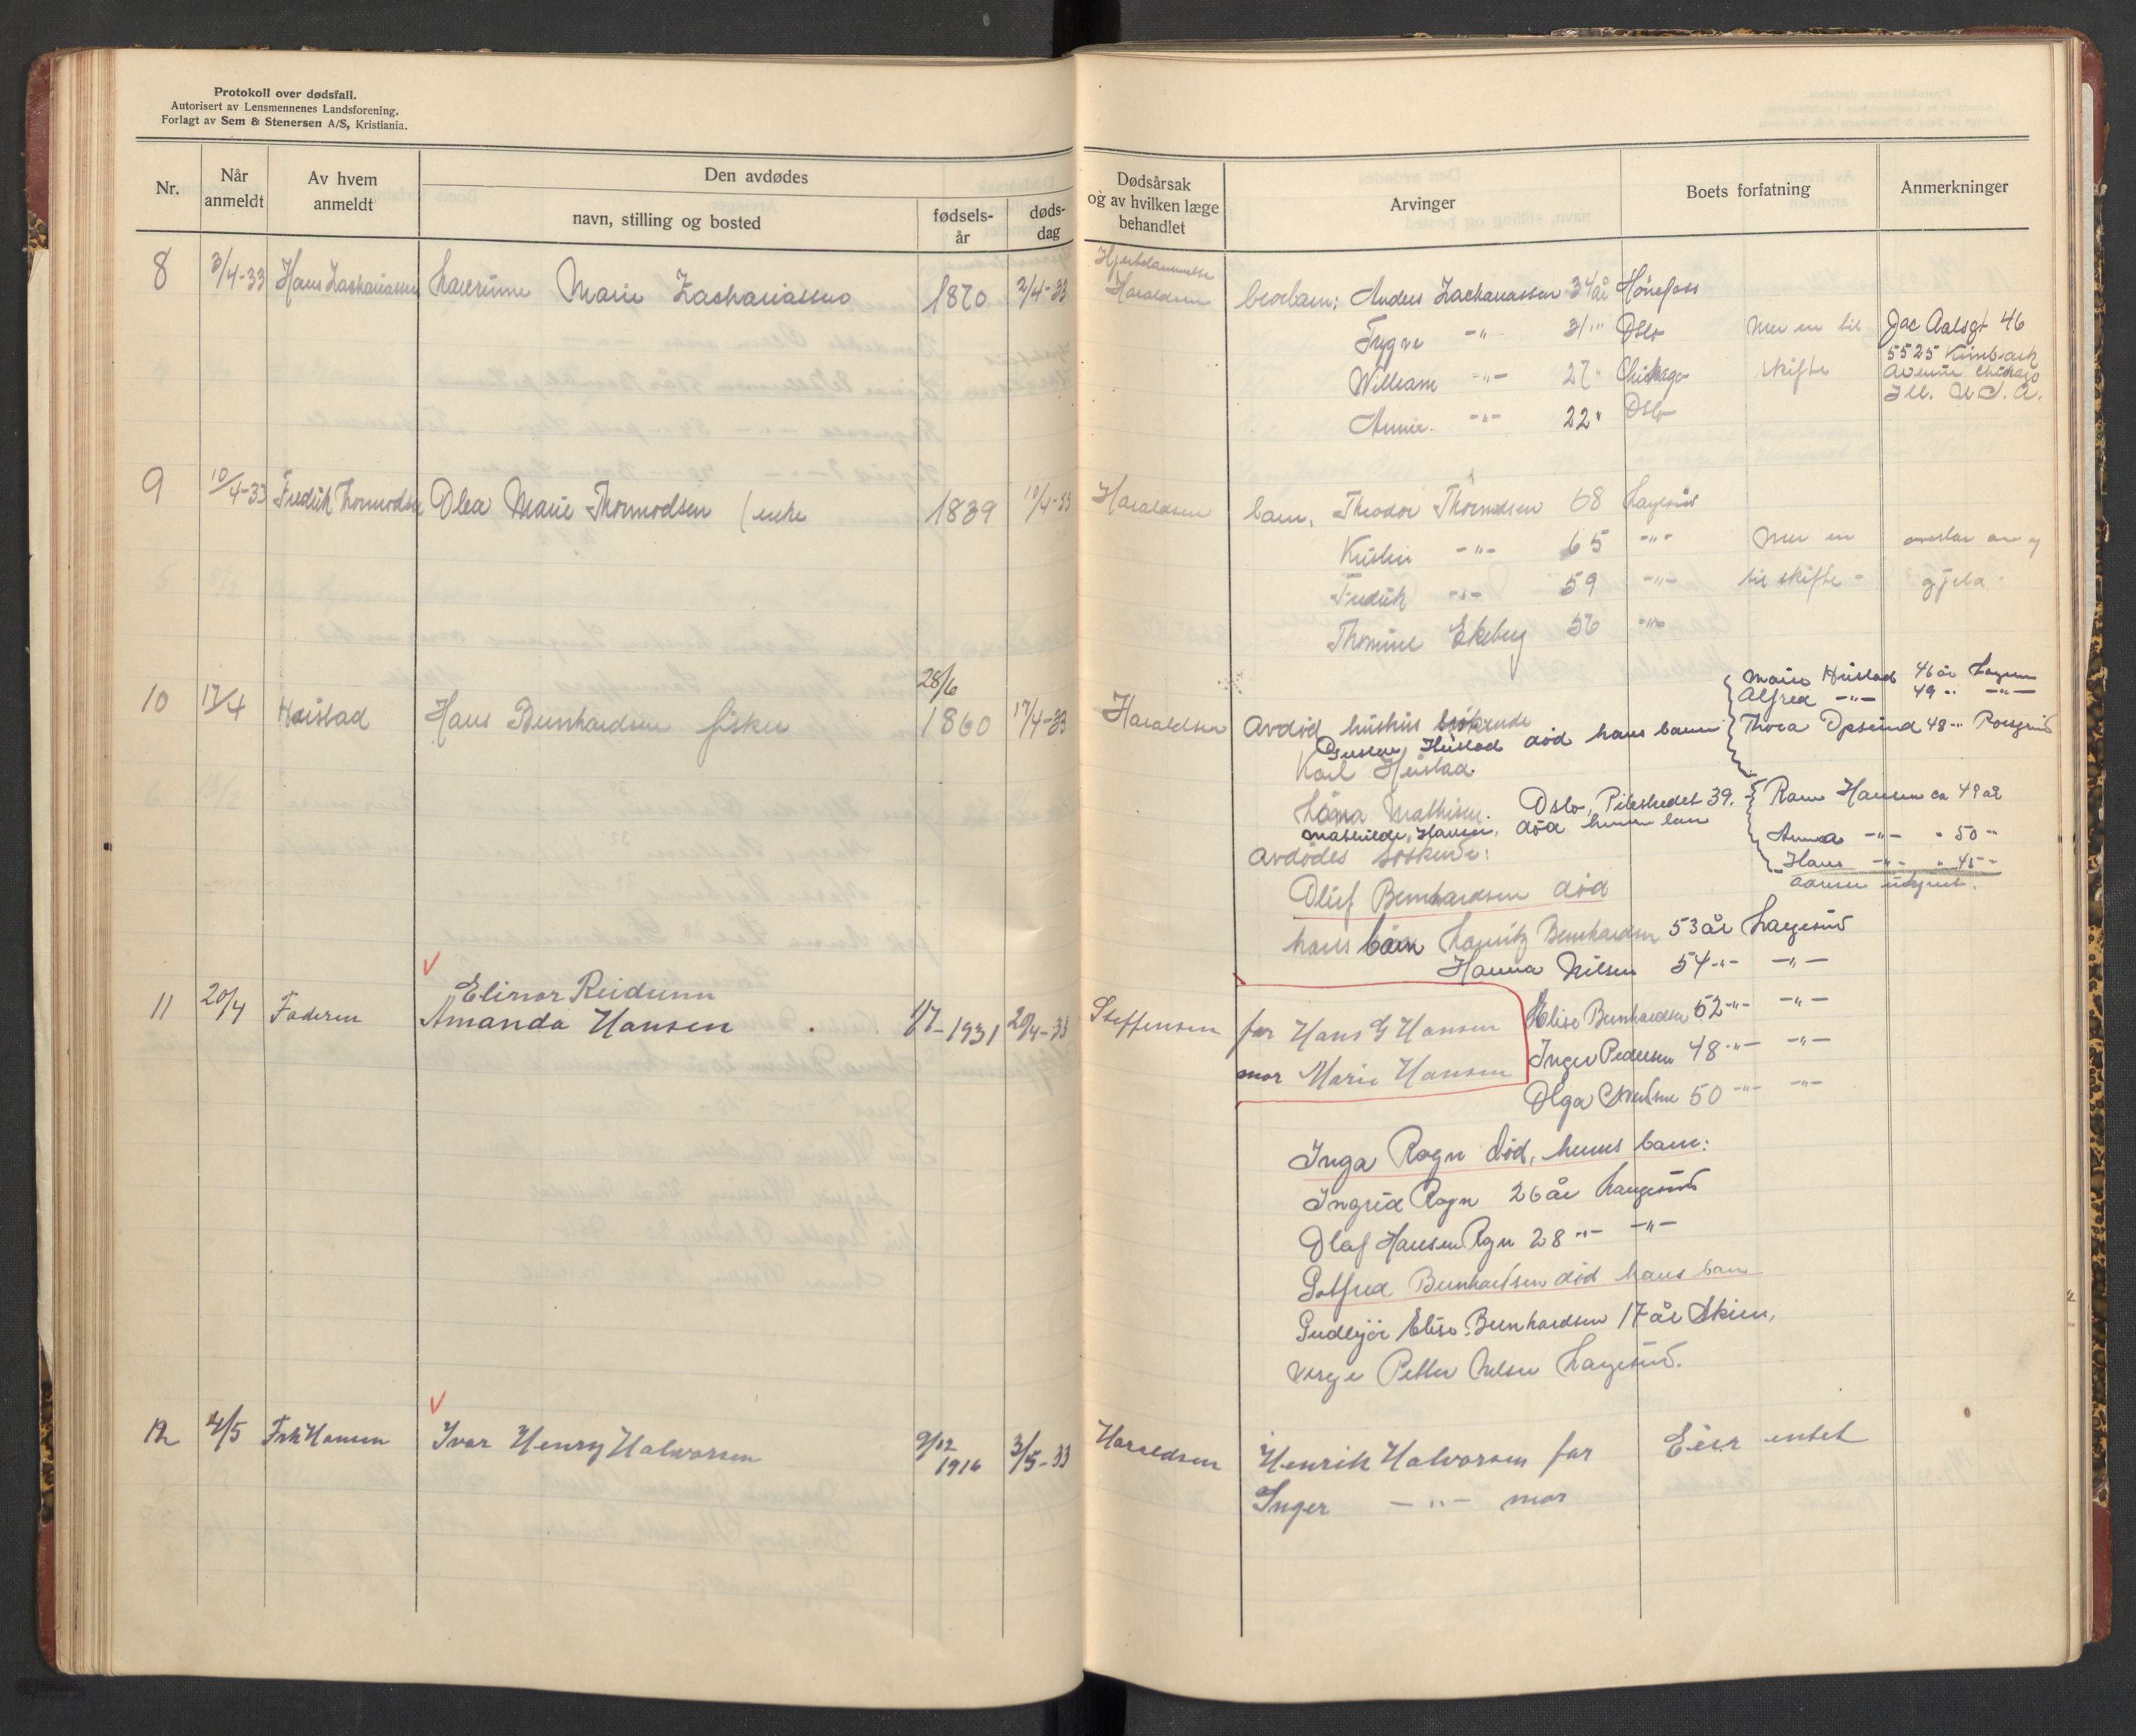 Protokoll over dødsfall.
Autorisert av Lensmennenes Landsforening.
Forlagt av Sem & Stenersen A/S, Kristiania.
Nr.
Når anmeldt
Av hvem anmeldt
Den avdødes
navn, stilling og bosted
fødsels-år
døds-dag
Dødsårsak og av hvilken læge behandlet
Arvinger
Boets forfatning
Anmerkninger
8 3/4-33 Hans Zachariassen Marie Zachariassen 1870 2/4-33 Haraldsen
Anders Zachariassen 34 år Hønefoss
Trygve -"- 31 "- Oslo Mer en til Jac Aalsgt 46
William -"- 27 " Chikago skifte 5525 Kimbark Avenue Chikago Ill. U.S.A.
Annie. -"- 22 " Oslo
9 10/4-33 Fredrik Thormodsen Olea Marie Thormodsen (enke 1839 10/4-33 Haraldsen
barn, Theodor Thormodsen 68 Langesund
Kristin -"- 65 -"- Mer en
Fredrik -"- 59 -"- til skifte - gjeld
Thomine Ekeberg 56 -"-
10 17/4 Heistad Hans Bernhardsen fisker 28/6 1860 17/4-33 Haraldsen
Marie Heistad 46 år Langesund
Alfred -"- 49 -"- -"-
Avdød hustrus søskende
Thora Opseund 48 -"- Porsgrund
Heistad død hans barn
Karl Heistad.
Mathisen. Oslo, Pilestredet 39.
Hansen ca 49 år
Mathilde Hansen, død hennes barn
Anna -"- " 50 -"-
Avdødes søskende:
Hans -"- " 45 -"-
Oluf Bernhardsen død
hans barn Lauritz Bernhardsen 53 år Langesund
Hanna Nilsen 54 -"- -"-
11 20/4 Faderen Elinor Reidunn Amanda Hansen 1/7-1931 20/4-33 Steffensen
far Hans G Hansen
mor Marie Hansen
Elise Bernhardsen 52 -"- -"-
Inger Pedersen 48 -"- -"-
Olga 50 -"- -"-
Inga Rogn død, hennes barn:
Ingrid Rogn 26 år Langesund
Olaf Hansen Rogn 28 -"- -"-
Gotfred Bernhardsen død hans barn
Gudbjør Elise Bernhardsen 17 år Skien,
verge Petter Nilsen Langesund.
12 4/5 Frk Hansen Ivar Henry Halvorsen 9/12 1916 3/5-33 Haraldsen
Henrik Halvorsen far Eier intet
Inger -"- mor